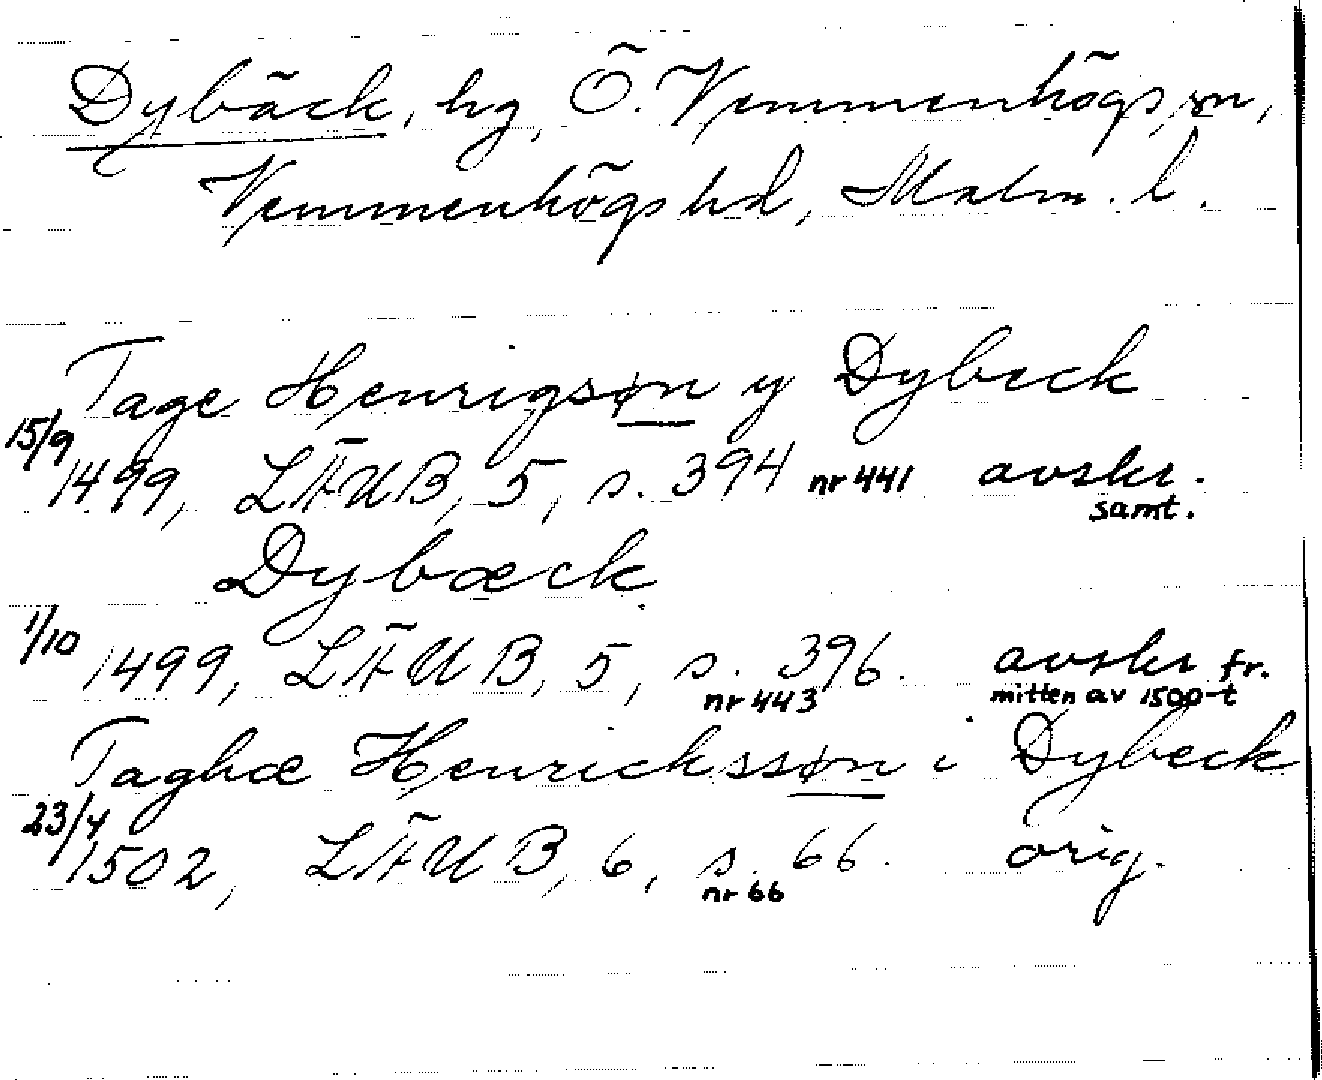 Dybäck, hg, Ö. Vemmenhögs sn,
Vemmenhögs hd, Malm. l.
Tage Henrigsøn y Dybeck
15/9 1499, LÄUB, 5, s. 394 nr 441 avskr.
samt.
Dybæck
1/10 1499, LÄUB, 5, s. 396. avskr fr.
nr 443 mitten av 1500-t
Taghæ Henrickssøn i Dybeck
23/4 1502, LÄUB, 6, s. 66. orig.
nr 66